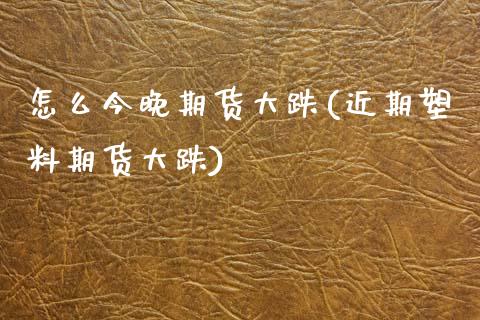 怎么今晚期货大跌(近期塑
料期货大跌)